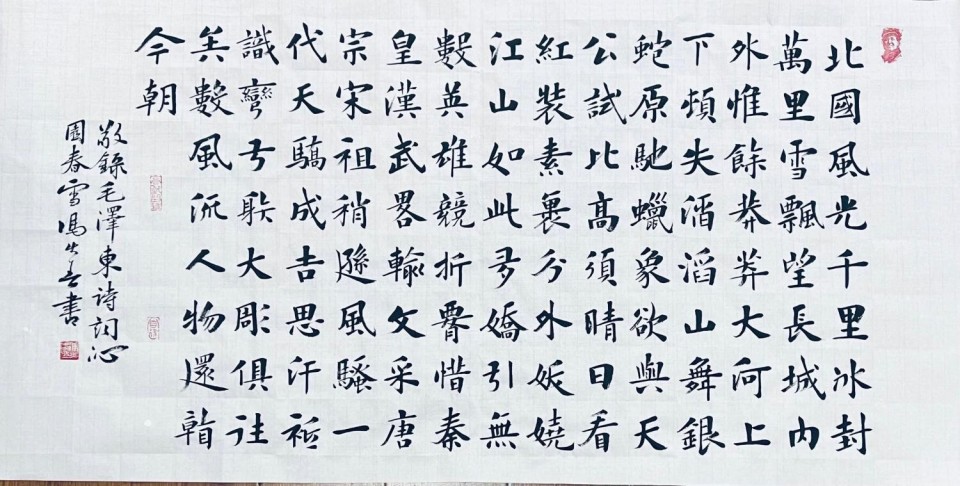 北國風光千里冰封
萬里雪飄望長城内
外惟餘莽莽大河上
下頓失滔滔山舞銀
蛇原馳蠟象欲與天
公試比高須晴日看
紅裝素裹分外妖嬈
江山如此多嬌引無
數英雄競折腰惜秦
皇漢武畧輸文采唐
宗宋祖稍遜風騷一
代天驕成吉思汗祗
識彎弓射大彫俱往
矣數風流人物還看
今朝
敬錄毛澤東诗词沁
園春雪馮書